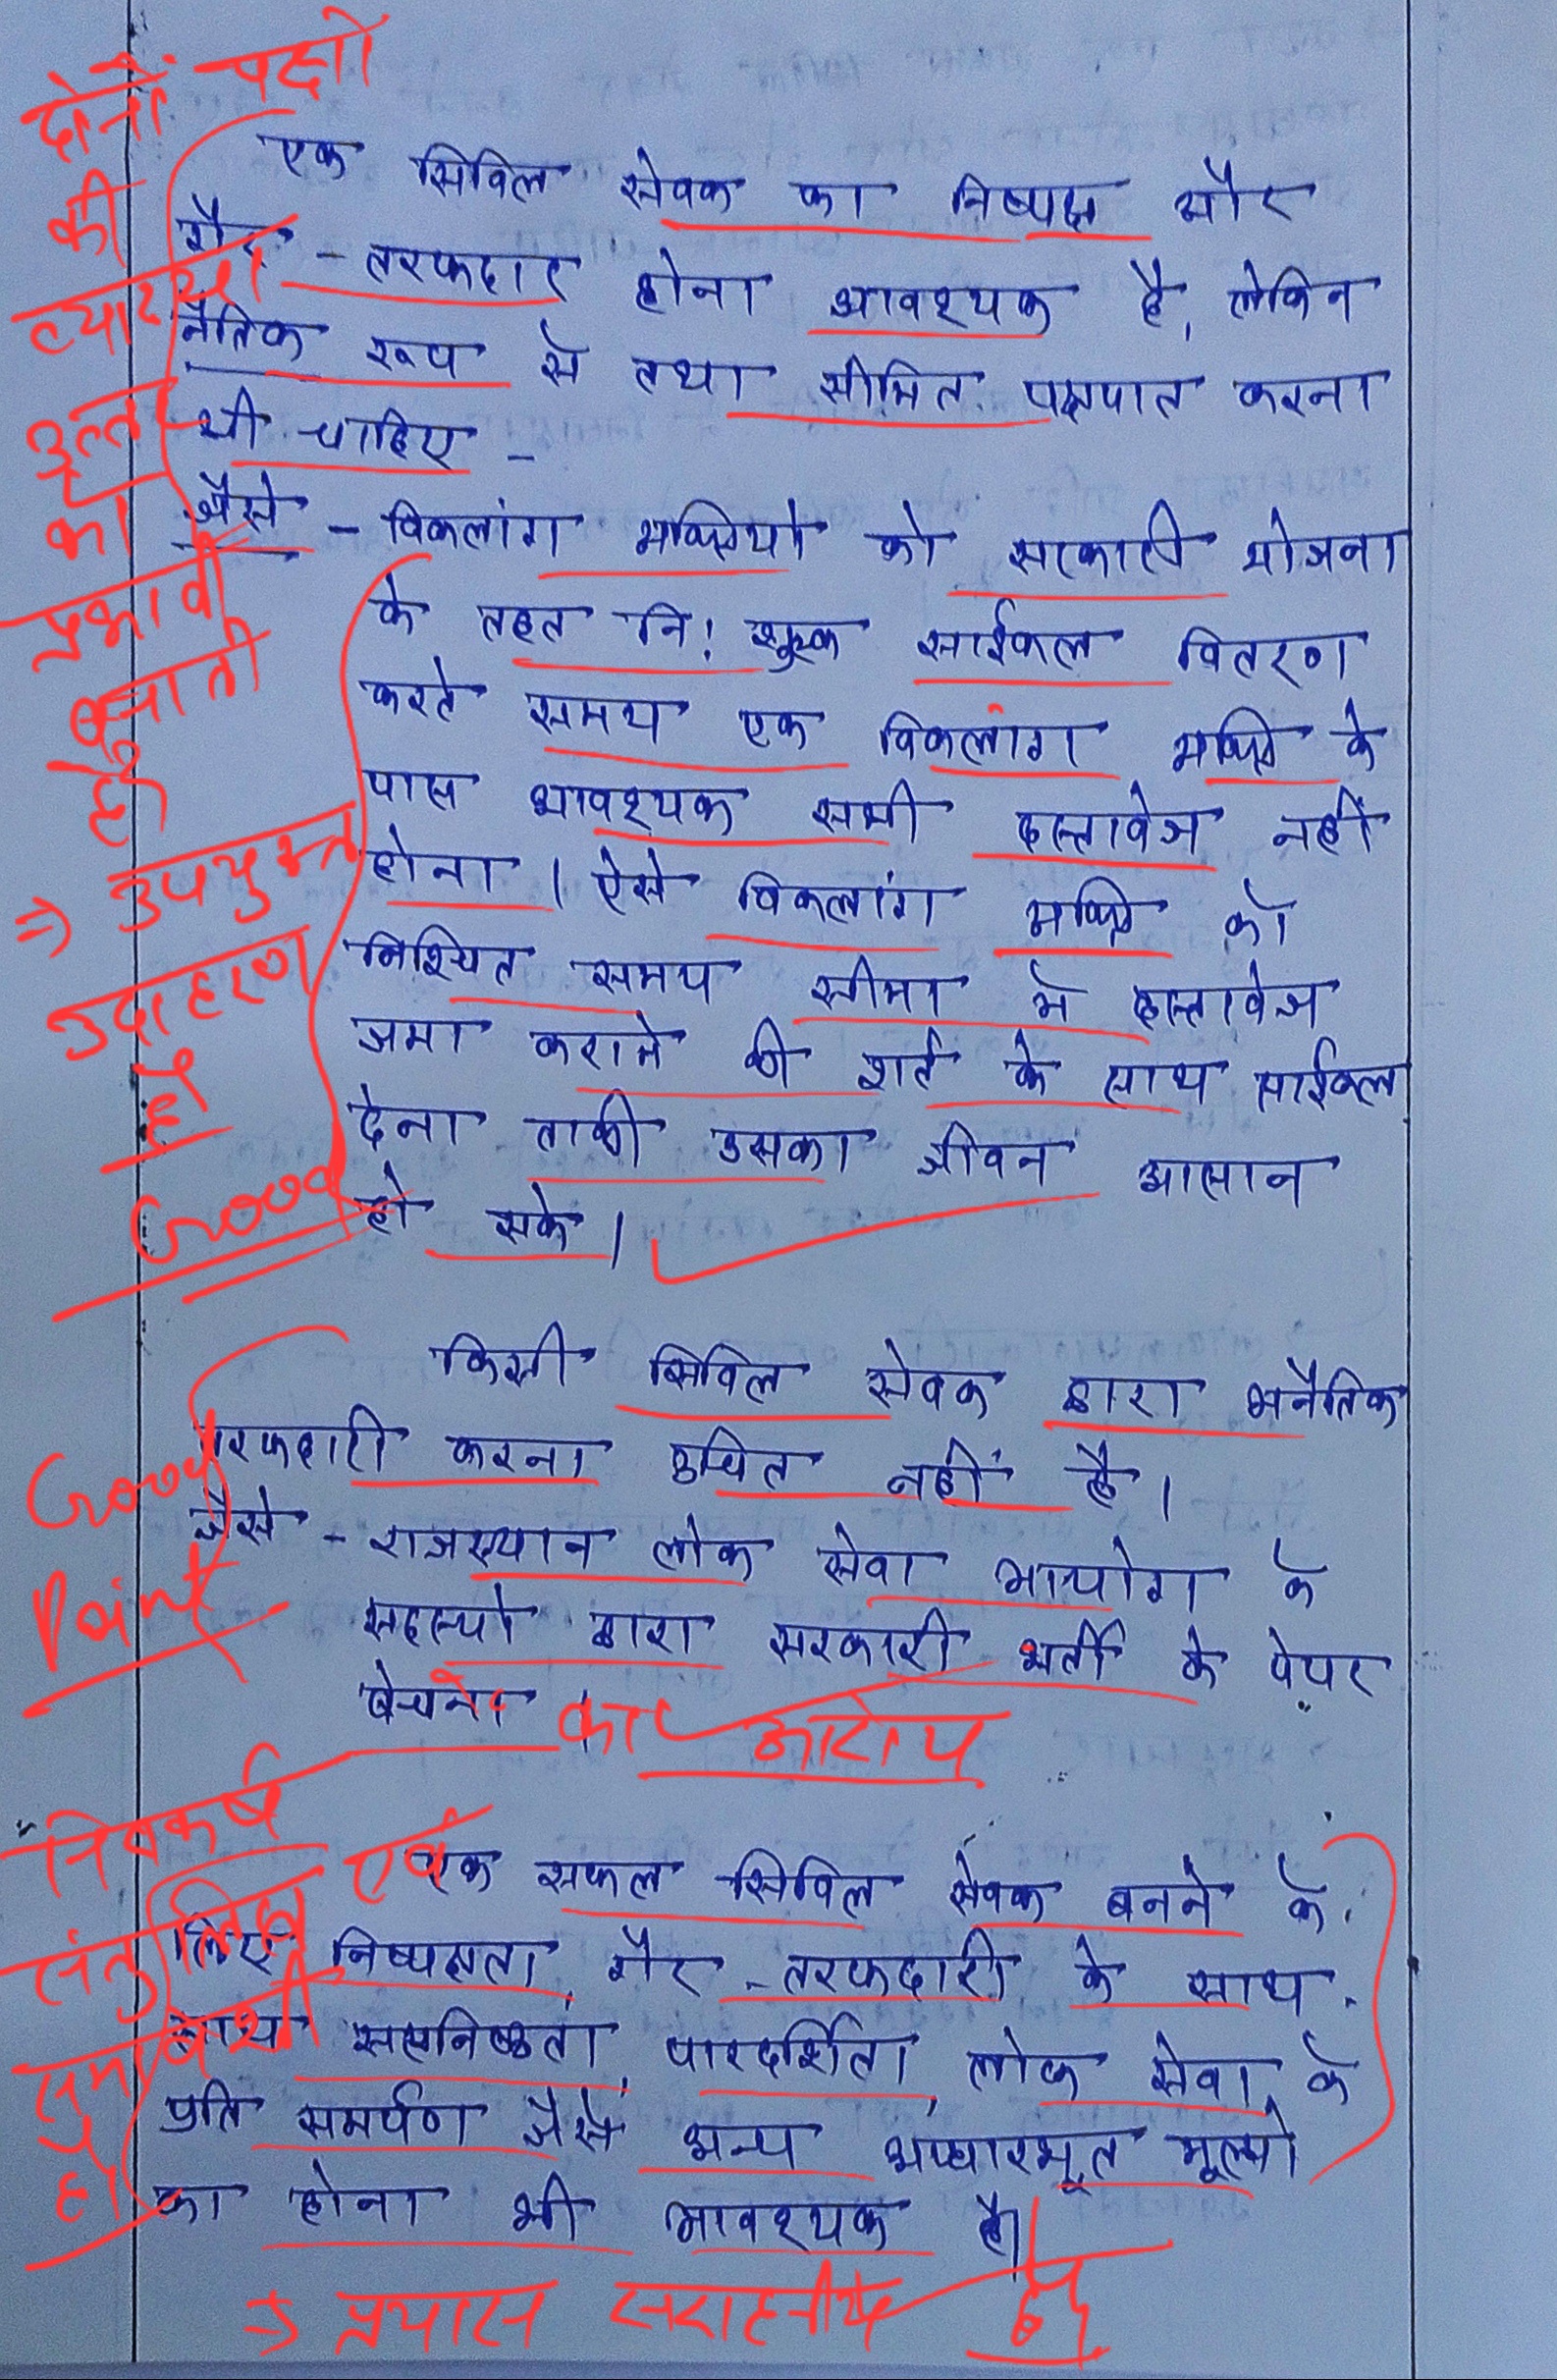 दोनों पक्षों
की
व्याख्या
उत्तर
को
प्रभावी
बनाती
है।
एक सिविल सेवक का निष्पक्ष और
गैर - तरफदार होना आवश्यक है, लेकिन
नैतिक रूप से तथा सीमित पक्षपात करना
भी चाहिए -
जैसे - विकलांग व्यक्तियो को सरकारी योजना
के तहत नि: शुल्क साईकल वितरण
करते समय एक विकलांग व्यक्ति के
पास आवश्यक सभी दस्तावेज नहीं
होना। ऐसे विकलांग व्यक्ति को
निश्चित समय सीमा में दस्तावेज
जमा कराने की शर्त के साथ साईकल
देना ताकी उसका जीवन आसान
हो सके।
⇒ उपयुक्त
उदाहरण
है।
Good
किसी सिविल सेवक द्वारा अनैतिक
तरफदारी करना उचित नहीं है।
जैसे - राजस्थान लोक सेवा आयोग के
सदस्यो द्वारा सरकारी भर्ती के पेपर
बेचने का आरोप
Good
Point
एक सफल सिविल सेवक बनने के
लिए निष्पक्षता, गैर - तरफदारी के साथ -
साथ सत्यनिष्ठता, पारदर्शिता, लोक सेवा के
प्रति समर्पण जैसे अन्य आधारभूत मूल्यो
का होना भी आवश्यक है।
निष्कर्ष
संतुलित एवं
समावेशी
है।
⇒ प्रयास सराहनीय है